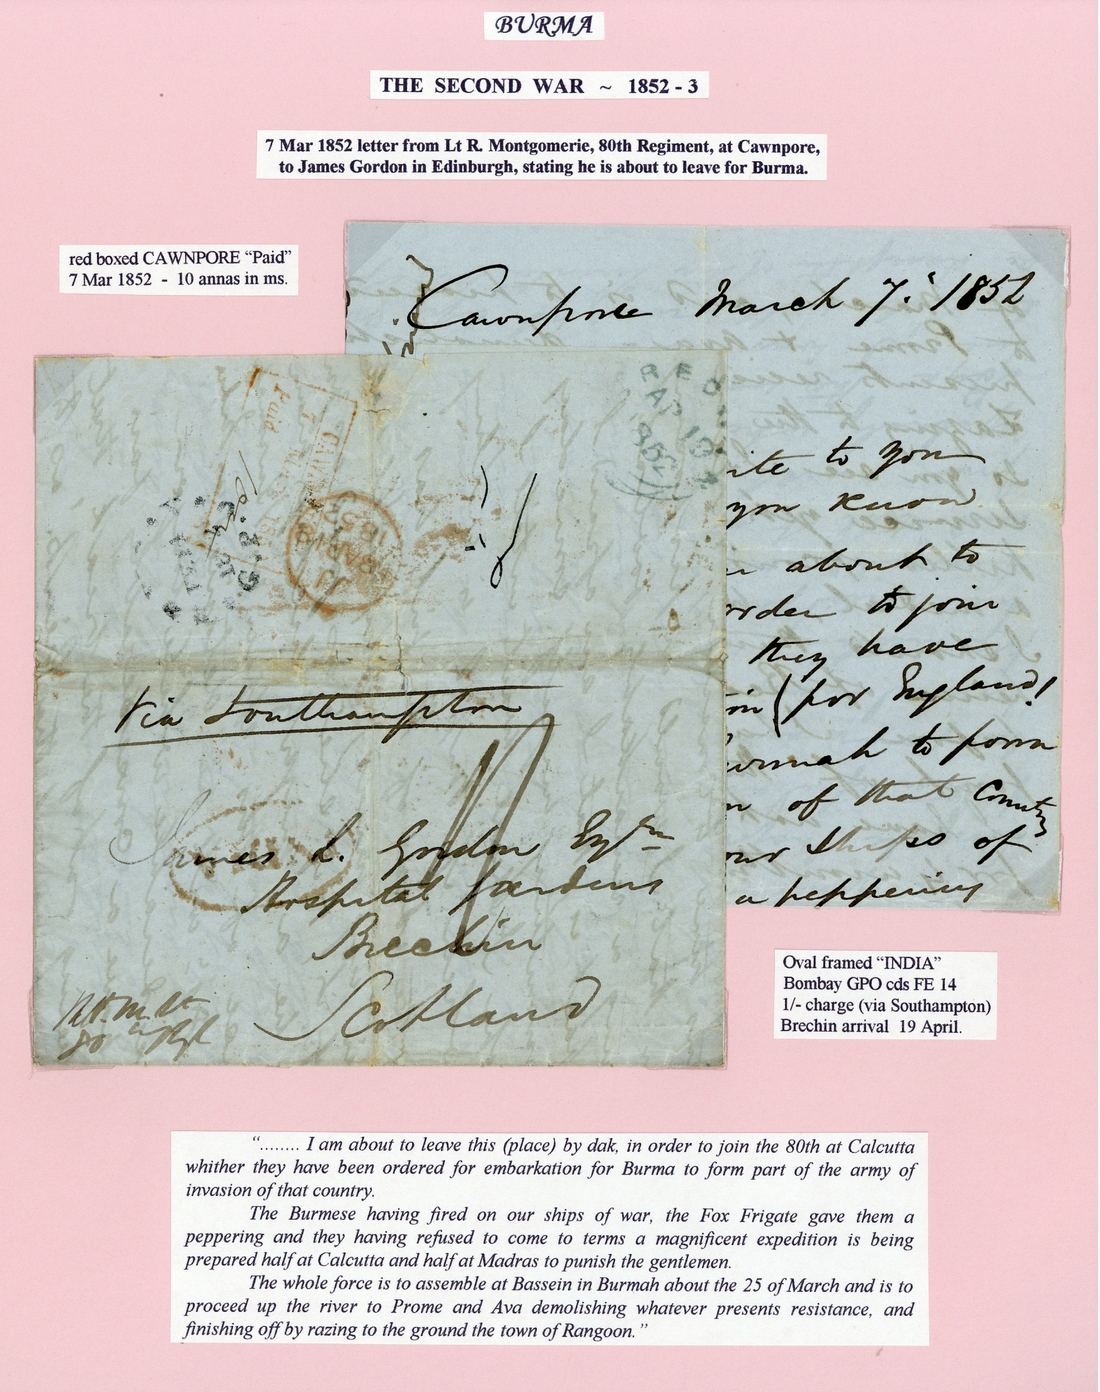 BURMA
THE SECOND WAR ~ 1852 - 3
7 Mar 1852 letter from Lt R. Montgomerie, 80th Regiment, at Cawnpore,
to James Gordon in Edinburgh, stating he is about to leave for Burma.
red boxed CAWNPORE “Paid”
7 Mar 1852 - 10 annas in ms.
Cawnpore March 7. 1852
ite to you
you know
about to
rder to join
they have
(for England!
urmah to form
of that Country
our ships of
a peppering
Paid
Via Southampton
James L. Gordon Esq
Hospital Gardens
Brechin
Scotland
80
Oval framed “INDIA”
Bombay GPO cds FE 14
1/- charge (via Southampton)
Brechin arrival 19 April.
“........ I am about to leave this (place) by dak, in order to join the 80th at Calcutta
whither they have been ordered for embarkation for Burma to form part of the army of
invasion of that country.
The Burmese having fired on our ships of war, the Fox Frigate gave them a
peppering and they having refused to come to terms a magnificent expedition is being
prepared half at Calcutta and half at Madras to punish the gentlemen.
The whole force is to assemble at Bassein in Burmah about the 25 of March and is to
proceed up the river to Prome and Ava demolishing whatever presents resistance, and
finishing off by razing to the ground the town of Rangoon.”